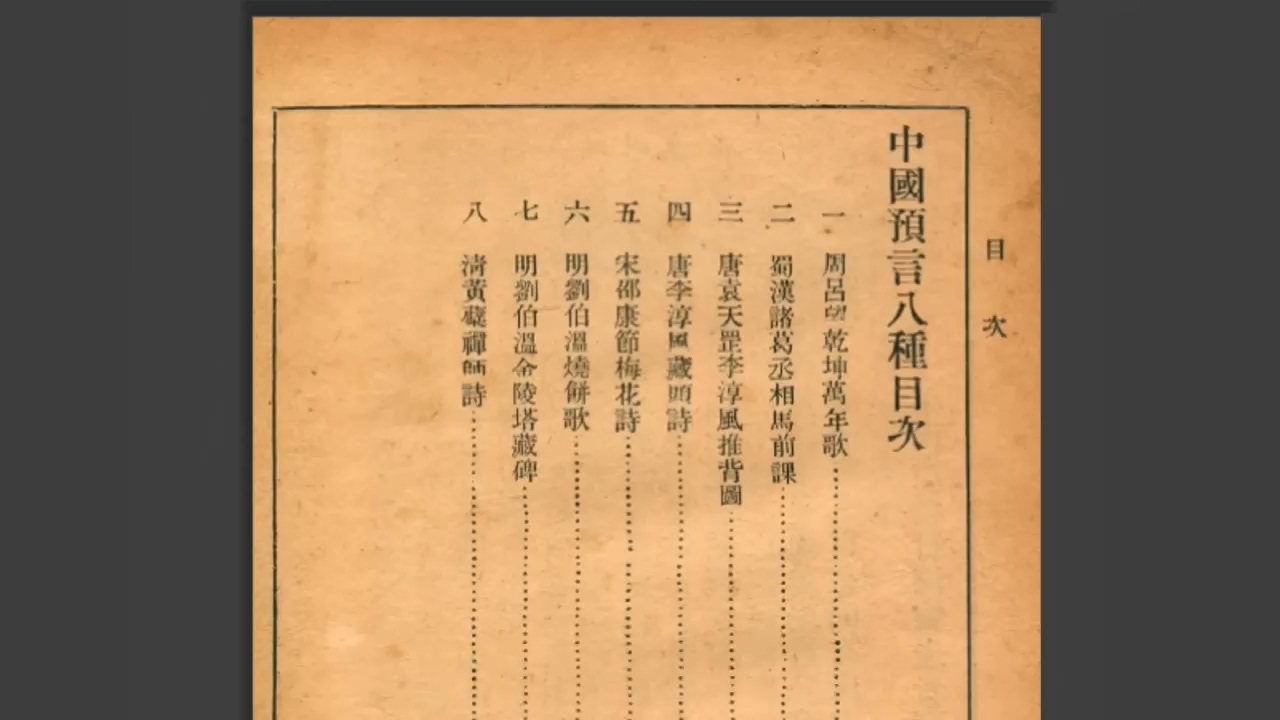 目次
中國預言八種目次
一 周呂望乾坤萬年歌
二 蜀漢諸葛丞相馬前課
三 唐袁天罡李淳風推背圖
四 唐李淳風藏頭詩
五 宋邵康節梅花詩
六 明劉伯溫燒餅歌
七 明劉伯溫金陵塔藏碑
八 清黃蘗禪師詩